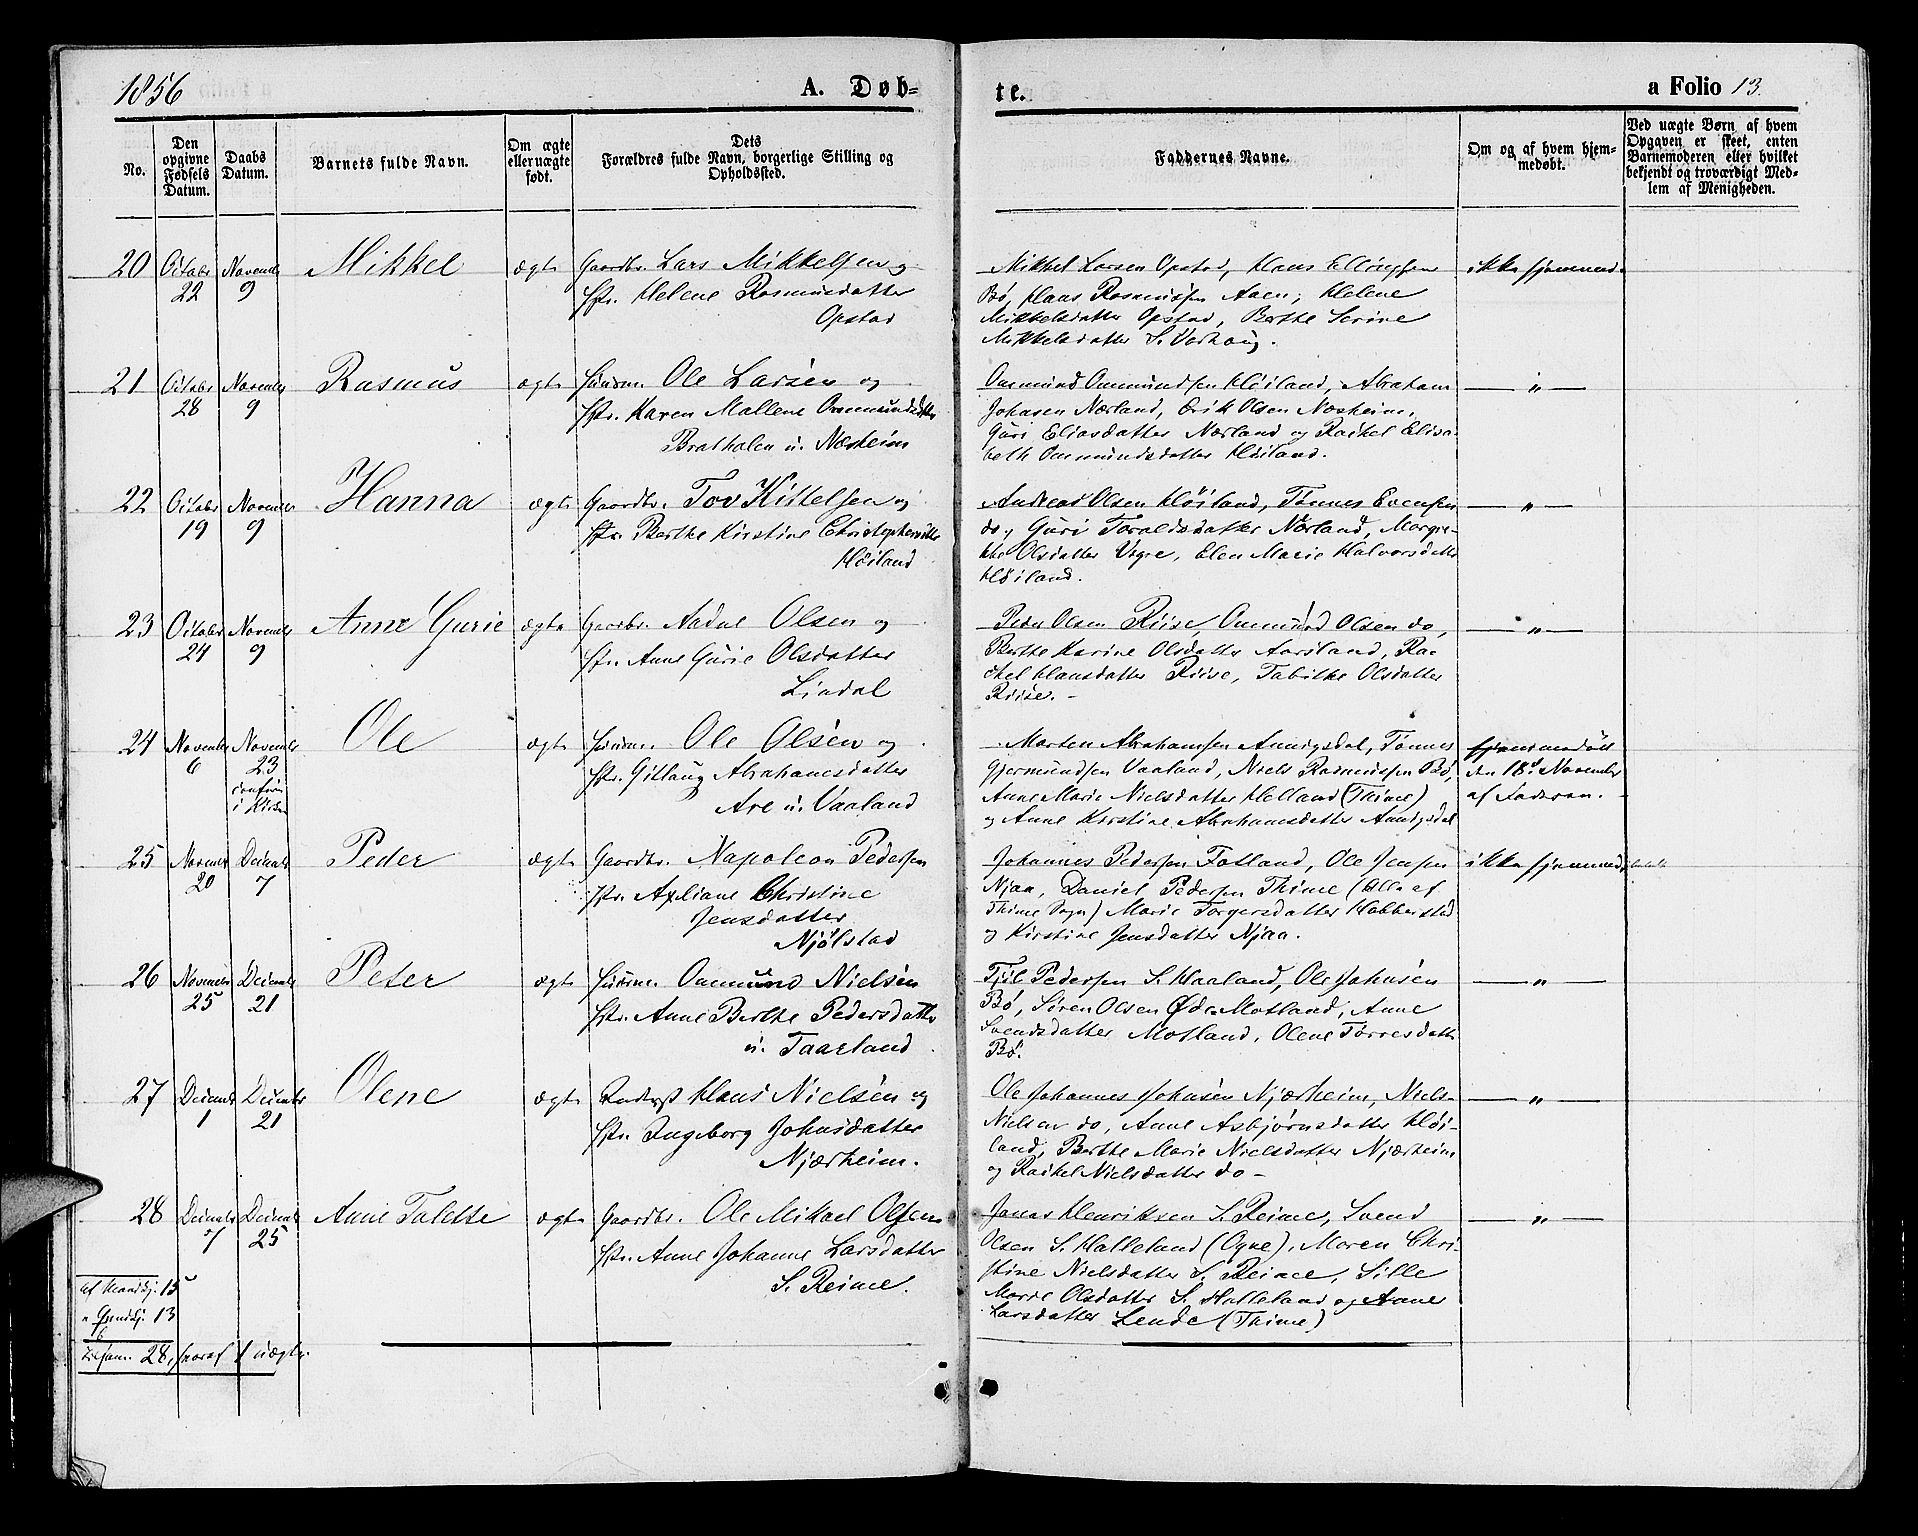 1856
A. Døb-
te.
a Folio 13.
No.
Den opgivne Fødsels Datum.
Daabs Datum.
Barnets fulde Navn.
Om ægte eller uægte født.
Dets Forældres fulde Navn, borgerlige Stilling og Opholdssted.
Faddernes Navne.
Om og af hvem hjem-
medøbt.
Ved uægte Børn af hvem
Opgaven er skeet, enten
Barnemoderen eller hvilket
bekjendt og troværdigt Med-
lem af Menigheden.
20 Octobr 22 Novembr 9 Mikkel ægte
Gaardbr. Lars Mikkelsen og
Hstr. Helene Rasmusdatter
Opstad
Mikkel Larsen Opstad, Klaus Ellingsen
Bø, Klaus Rasmussen Aaen, Helene
Mikkelsdatter Opstad, Berthe Serine
Mikkelsdatter S. Varhoug.
ikke hjemmed.
21 Octobr 28 Novembr 9 Rasmus ægte
Huusm. Ole Larsen og
Hstr. Karen Mallene Ommundsdtter
Bratholen u. Næsheim
Ommund Ommundsen Høiland, Abraham
Johasen Nærland, Erik Olsen Næsheim,
Guri Eliasdatter Nærland og Rackel Elisa-
beth Ommundsdatter Høiland.
— " —
22 Octobr 19 Novembr 9 Hanna ægte
Gaardbr. Tov Kittelsen og
Hstr. Berthe Kirstine Christophersdtr
Høiland
Andreas Olsen Høiland, Tønnes Evensen
do, Guri Toraldsdatter Nærland, Margre-
the Olsdatter Vigre, Elen Marie Halvorsdattr
Høiland.
— " —
23 Octobr 24 Novembr 9 Anne Gurie ægte
Gaardbr. Aadne Olsen og
Hstr. Anne Gurie Olsdatter
Lindal
Peder Olsen Riise, Ommund Olsen do,
Berthe Karine Olsdatter Aarsland, Ra-
chel Hansdatter Riise, Tabithe Olsdatter
Riise. -
— " —
24 November 6 Novembr 23 confirm i Kirken Ole ægte
Huusm. Ole Olsen og
Hstr. Gitlaug Abrahamsdatter
Are u. Vaaland
Morten Abrahamsen Aunigsdal, Tønnes
Gjermundsen Vaaland, Niels Rasmussen Bø,
Anne Marie Nielsdatter Helland (Thime)
og Anne Kirstine Abrahamsdatter Aunigsdal
hjemmedøbt
den 18d November
af Faderen.
25 Novembr 20 Decembr 7 Peder ægte
Gaardbr. Napoleon Pedersen
Hstr. Axeliane Christine
Jensdatter
Njølstad
Johannes Pedersen Fotland, Ole Jensen
Njaa, Daniel Pedersen Thime (Alle af
Thime Sogn) Marie Torgersdatter Hobberstad
og Kirstine Jensdatter Njaa.
ikke hjemmed
26 Novembr 25 Decembr 21 Peter ægte
Huusm. Ommund Nielsen
Hstr. Anne Berthe Pedersdattr
u. Taarland
Tjøl Pedersen S. Haaland, Ole Johnsen
Bø, Søren Olsen Øde-Motland, Anne
Svendsdatter Motland, Olene Tørresdattr
Bø.
— " —
27 Decembr 1 Decembr 21 Olene ægte
Klaus Nielsen og
Hstr. Ingeborg Johnsdatter
Njærheim.
Ole Johannes Johnsen Njærheim, Niels
Nielsen do, Anne Asbjørnsdatter Høi-
land, Berthe Marie Nielsdatter Njærheim
og Rackel Nielsdatter do -
— " —
28 Decembr 7 Decembr 25 Anne Talette ægte
Gaardbr. Ole Mikael Olsen
Hstr. Anne Johanne Larsdatter
S. Reime.
Jonas Henriksen S. Reime, Svend
Olsen S. Halleland (Ogne), Maren Chri-
stine Nielsdatter S. Reime, Sille
Marie Olsdatter S. Halleland og Anne
Larsdatter Lende (Thime)
— " —
af Mandkj. 15
" Qvindkj. 13
Tilsam. 28, hvoraf 1 uægte.